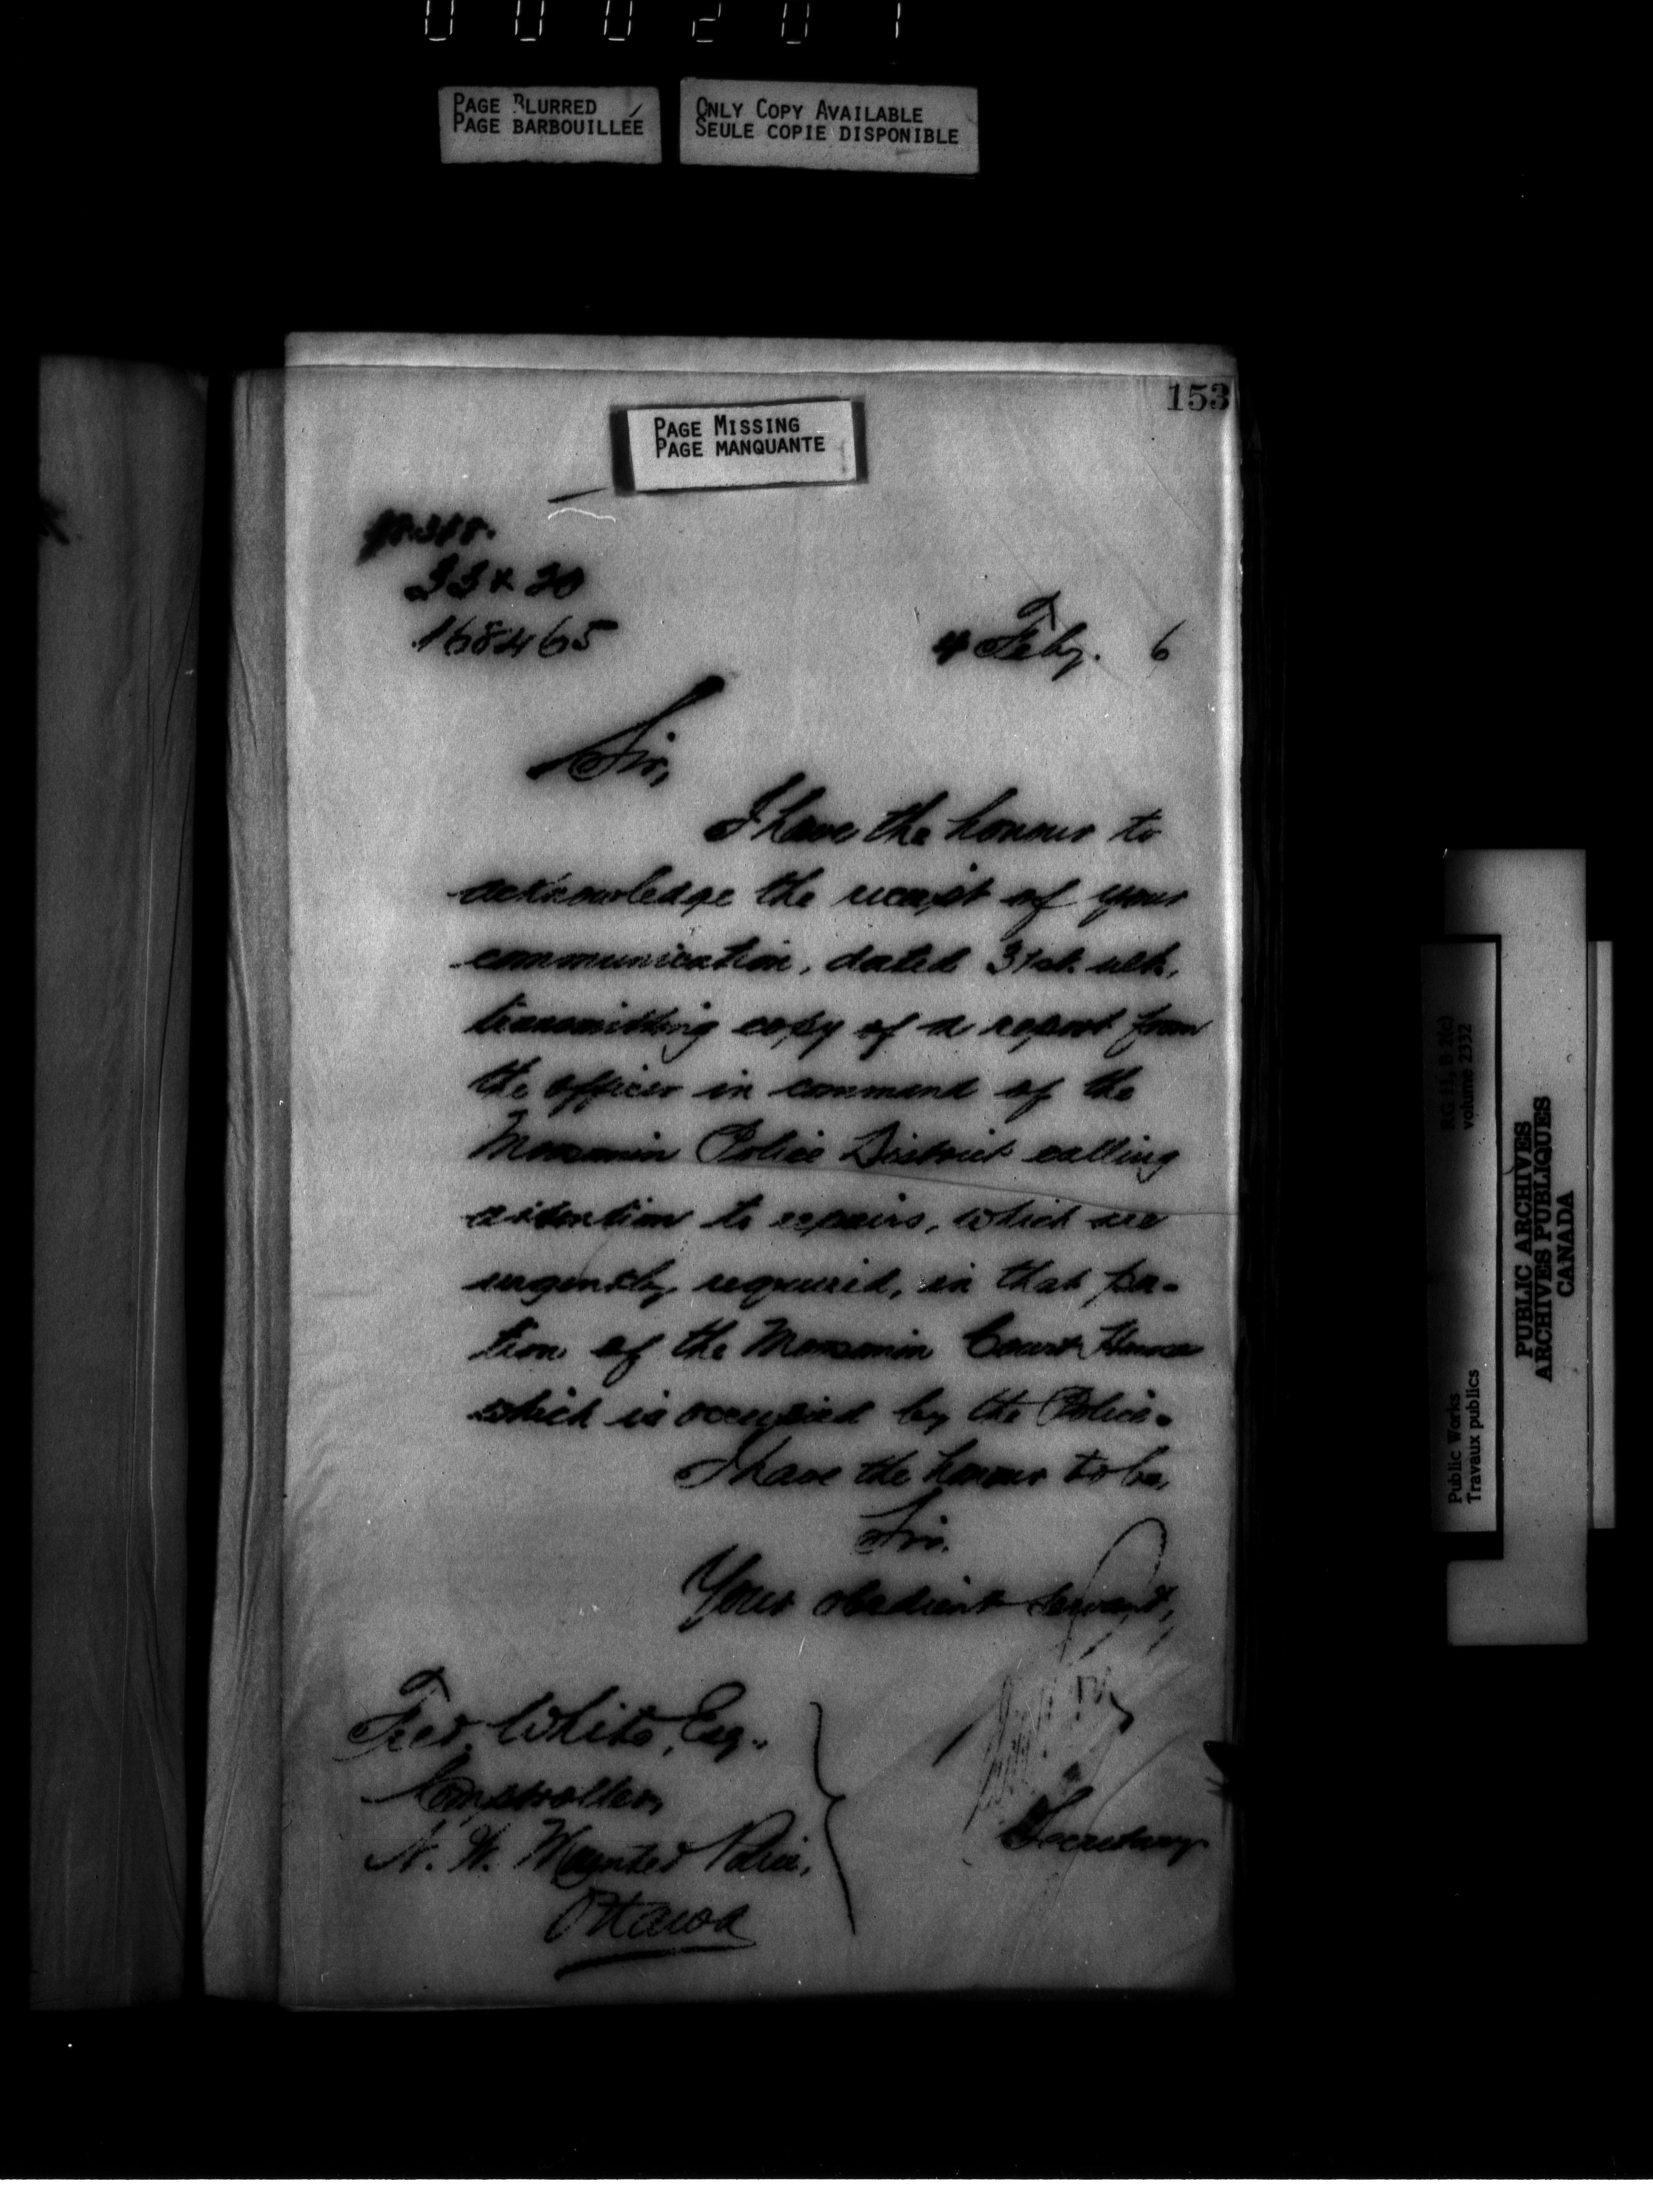 000201
PAGE BLURRED
PAGE BARBOUILLÉE
ONLY COPY AVAILABLE
SEULE COPIE DISPONIBLE
153
PAGE MISSING
PAGE MANQUANTE
33 x 20
168465
4 Feby. 6
Sir,
I have the honour to
acknowledge the receipt of your
communication, dated 31st ult.
transmitting copy of a report from
the officer in command of the
Moosomin Police District calling
attention to repairs, which are
urgently required, in that por-
tion of the Moosomin Court House
which is occupied by the Police.
I have the honour to be,
Sir,
Your obedient servant,
Fred White, Esq.
Comptroller,
N. W. Mounted Police,
Ottawa
Secretary
RG 11, B 2(c)
volume 2332
Public Works
Travaux publics
PUBLIC ARCHIVES
ARCHIVES PUBLIQUES
CANADA